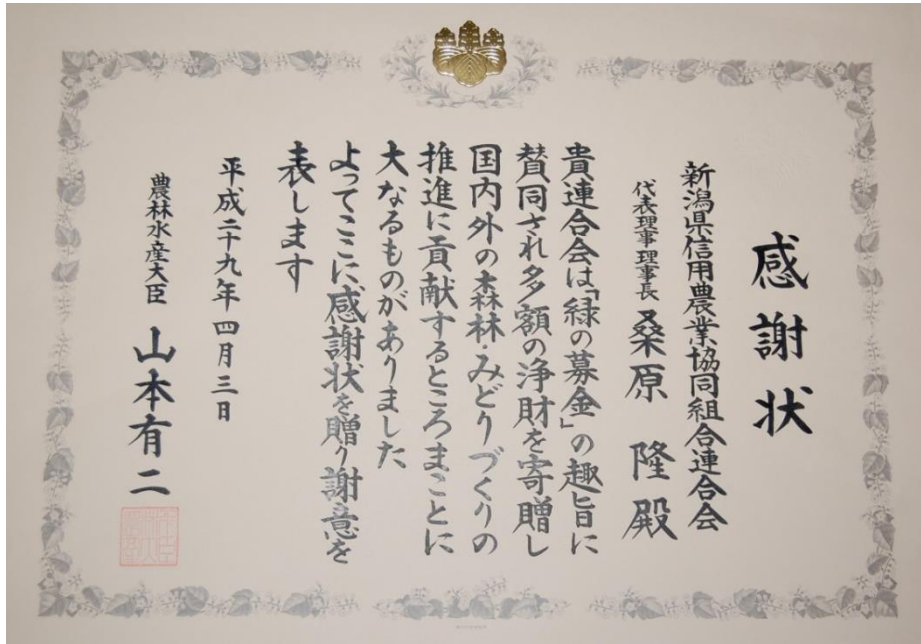 感謝状
新潟県信用農業協同組合連合会
代表理事理事長 桑原 隆殿
貴連合会は「緑の募金」の趣旨に
賛同され多額の浄財を寄贈し
国内外の森林・みどりづくりの
推進に貢献するところまことに
大なるものがありました
よってここに感謝状を贈り謝意を
表します
平成二十九年四月三日
農林水産大臣 山本有二